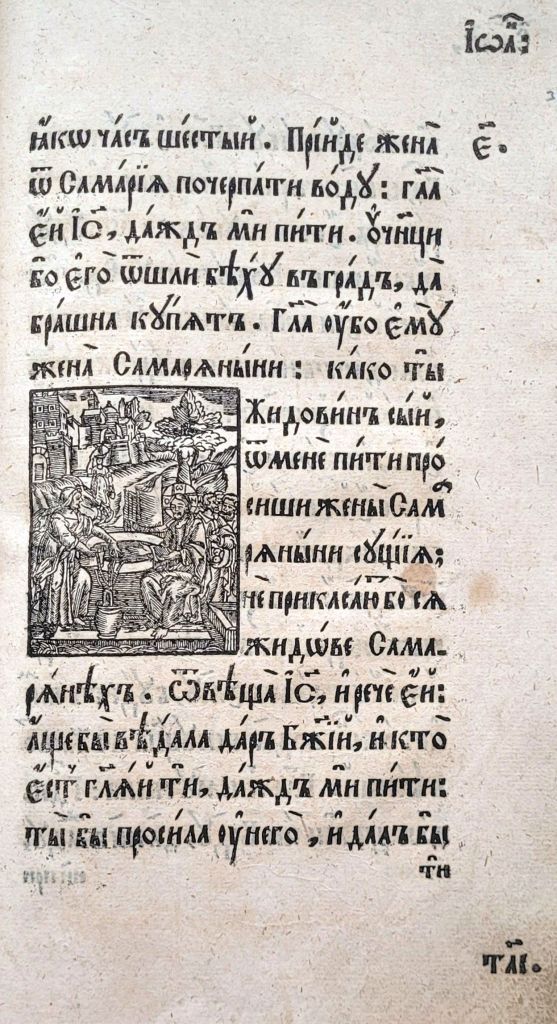 І҆ѡа҃н:
ꙗ҆́кѡ ча́съ шесты́й. Прїи́де жена̀
є҃.
ѿ Самарі́ѧ почерпа́ти во́дꙋ: гл҃а
є҆́й І҆с҃, да́ждъ мѝ пи́ти. Оу҆чн҃ци
бо є҆гѡ̀ ѿшлѝ бѣ́хꙋ въ гра́дъ, да̀
бра́шна кꙋ́пѧтъ. Гл҃а ᲂу҆̀бо є҆мꙋ̀
жена̀ Самарѧны́ни: ка́ко ты̀
Жидови́нъ сы́й,
ѿ менѐ пи́ти про́
сиши жены̀ Сам
рѧны́ни сꙋ́щїѧ;
не прикаса́ю бо сѧ
жидѡ́ве Сама-
рѧ́нѣхъ. Ѿвѣща̀ І҆с҃, и҆ речѐ є҆́й:
а҆́ще бы̀ вѣ́дала да́ръ Бж҃їй, и҆ кто̀
є҆́ст гл҃ѧй тѝ, да́ждъ мѝ пи́ти:
ты̀ бы̀ проси́ла ᲂу҆ негѡ̀, и҆ да́лъ бы̀
тѝ
тл҃і.